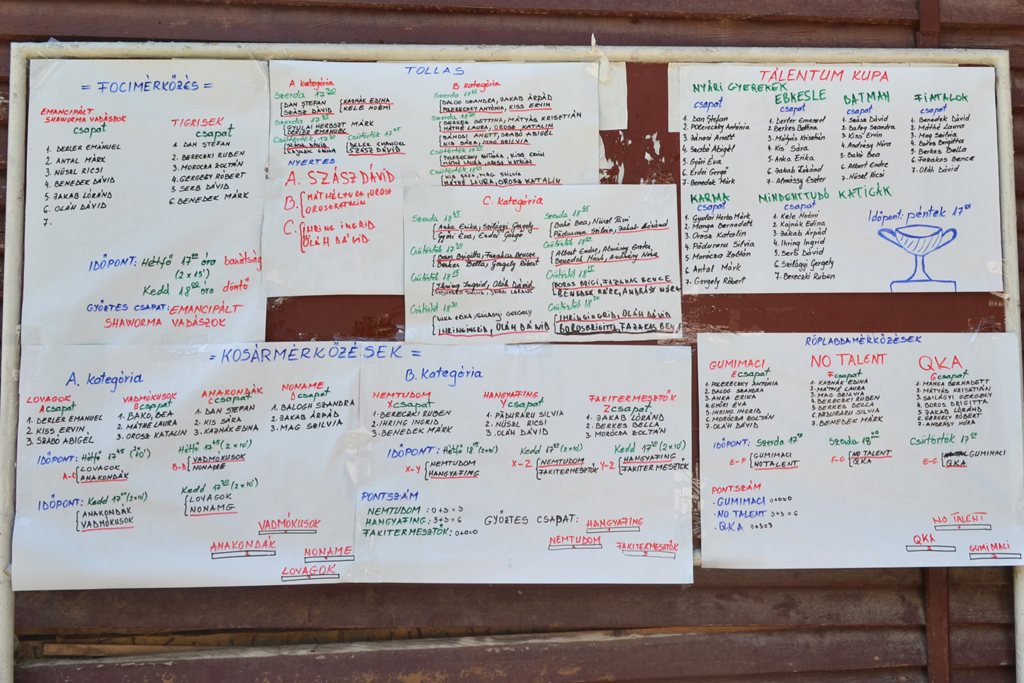 = FOCIMÉRKŐZÉS =
EMANCIPÁLT
SHAWORMA VADÁSZOK
csapat
1. DERLER EMÁNUEL
2. ANTAL MÁRK
3. NÜSAL RICSI
4. BENEDEK DÁVID
5. JAKAB LÓRÁND
6. OLÁH DÁVID
7.
TIGRISEK
csapat
1. DAN ŞTEFAN
2. BERECZKI RUBEN
3. MOROCZA ZOLTÁN
4. GERGELY RÓBERT
5. SERB DÁVID
6. BENEDEK MÁRK
IDŐPONT: Hétfő 17 óra barátság
(2 x 15')
Kedd 18 óra döntő
GYŐZTES CSAPAT: EMANCIPÁLT
SHAWORMA VADÁSZOK
TOLLAS
A kategória
Szerda 17 30
DAN ŞTEFAN
SZÁSZ DÁVID
KAJNÁK EDINA
KELE NOÉMI
NYERTES
A. SZÁSZ DÁVID
B.
C. IHRING INGRID
OLÁH DÁVID
B kategória
BALOG SZANDRA, JAKAB ÁRPÁD
POLERECZKY ANTÓNIA, KISS ERVIN
BERKES BETTINA, MÁTYÁS KRISZTIÁN
MÁTHÉ LAURA, OROSZ KATALIN
BÁNÓSI ANETT, SZABÓ ABIGÉL
KIS SÁRA, MAG SZILVIA
MÁTHÉ LAURA, OROSZ KATALIN
C. kategória
Szerda 18
Anka Erika, Szilágyi Gergely
Győri Éva, Erdei Gergő
Csütörtök
Boros Brigitta, Fazakas Bence
Berkes Bella, Gergely Róbert
Csütörtök 18
Ihring Ingrid, Oláh Dávid
Csütörtök 18
IHRING INGRID, OLÁH DÁVID
Szerda 18
Bakó Bea, Nüsal Ricsi
Păduraru Silvia, Jakab Lóránd
Csütörtök 18
BOROS BRIGI, FAZAKAS BENCE
BENEDEK MÁRK, ANDRÁSY NÓRA
Csütörtök 18
IHRING INGRID, OLÁH DÁVID
BOROS BRIGITTA, FAZAKAS BEN
TALENTUM KUPA
NYÁRI GYEREKEK
csapat
1. Dan Ştefan
2. Polereczky Antónia
3. Bánosi Anett
4. Szabó Abigél
5. Győri Éva
6. Erdei Gergő
7. Benedek Márk
EBKESLE
csapat
1. Derler Emanuel
2. Berkes Bettina
3. Mátyás Krisztián
4. Kis Sára
5. Anka Erika
6. Jakab Lóránd
7. Almássy Eszter
BATMAN
csapat
1. Szász Dávid
2. Balog Szandra
3. Kiss Ervin
4. Andrássy Nóra
5. Bakó Bea
6. Albert Endre
7. Nüsal Ricsi
FIATALOK
csapat
1. Benedek Dávid
2. Máthé Laura
3. Mag Szilvia
4. Boros Brigitta
5. Berkes Bella
6. Fazakas Bence
7. Oláh Dávid
KARMA
csapat
1. Gyulai Herbszt Márk
2. Manga Bernadett
3. Orosz Katalin
4. Păduraru Silvia
5. Morocza Zoltán
6. Antal Márk
7. Gergely Róbert
MINDENTTUDÓ KATICÁK
csapat
1. Kele Noémi
2. Kajnák Edina
3. Jakab Árpád
4. Ihring Ingrid
5. Serb Dávid
6. Szilágyi Gergely
7. Bereczki Ruben
Időpont: péntek 17
= KOSÁRMÉRKŐZÉSEK =
A. kategória
LOVAGOK
A csapat
1. DERLER EMANUEL
2. KISS ERVIN
3. SZABÓ ABIGÉL
VADMÓKUSOK
B csapat
1. BAKÓ BEA
2. MÁTHÉ LAURA
3. OROSZ KATALIN
ANAKONDÁK
C csapat
1. DAN ŞTEFAN
2. KIS SÁRA
3. KAJNÁK EDINA
NONAME
D csapat
1. BALOGH SZANDRA
2. JAKAB ÁRPÁD
3. MAG SZILVIA
IDŐPONT: Hétfő 17
A-C LOVAGOK
ANAKONDÁK
Hétfő 17 (2x10)
B-D VADMÓKUSOK
NONAME
IDŐPONT: Kedd 17 (2x10)
ANAKONDÁK
VADMÓKUSOK
Kedd 17 (2x10)
LOVAGOK
NONAME
VADMÓKUSOK
ANAKONDÁK
NONAME
LOVAGOK
B. Kategória
NEMTUDOM
X csapat
1. BERECZKI RUBEN
2. IHRING INGRID
3. BENEDEK MÁRK
HANGYAFING
Y csapat
1. PĂDURARU SILVIA
2. NÜSAL RICSI
3. OLÁH DÁVID
FAKITERMESZTŐK
Z csapat
1. JAKAB LÓRÁND
2. BERKES BELLA
3. MOROCZA ZOLTÁN
IDŐPONT: Hétfő 18 (2x10)
X-Y NEMTUDOM
HANGYAFING
Kedd 17 (2x10)
X-Z NEMTUDOM
FAKITERMESZTŐK
Kedd 17 (2x10)
Y-Z HANGYAFING
FAKITERMESZTŐK
PONTSZÁM
NEMTUDOM : 0+3=3
HANGYAFING : 3+3=6
FAKITERMESZTŐK: 0+0=0
GYŐZTES CSAPAT: HANGYAFING
NEMTUDOM
FAKITERMESZTŐK
RÖPLABDAMÉRKŐZÉSEK
GUMIMACI
E csapat
1. POLERECZKY ANTÓNIA
2. BALOG SZANDRA
3. ANKA ERIKA
4. GYŐRI ÉVA
5. IHRING INGRID
6. MOROCZA ZOLTÁN
7. OLÁH DÁVID
NO TALENT
F csapat
1. KAJNÁK EDINA
2. MÁTHÉ LAURA
3. MAG SZILVIA
4. BERECZKI RUBEN
5. BERKES BELLA
6. PĂDURARU SILVIA
7. BENEDEK MÁRK
QKA
G csapat
1. MANGA BERNADETT
2. MÁTYÁS KRISTIÁN
3. SZILÁGYI GERGELY
4. BOROS BRIGITTA
5. JAKAB LÓRÁND
6. GERGELY RÓBERT
7. ANDRÁSY NÓRA
IDŐPONT: Szerda 17
E-F GUMIMACI
NOTALENT
Szerda 18
F-G NO TALENT
QKA
Csütörtök 17
E-G GUMIMACI
QKA
PONTSZÁM
- GUMIMACI : 0+0=0
- NO TALENT 3+3=6
- QKA : 0+3=3
NO TALENT
QKA
GUMIMACI